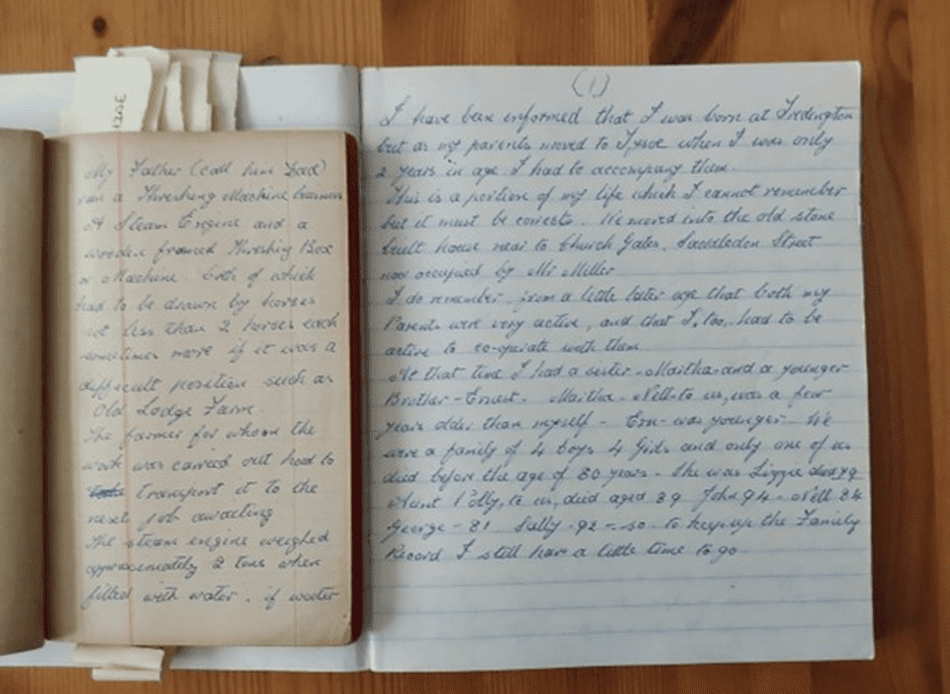 My Father (call him Dad)
ran a Threshing Machine business
A Steam Engine and a
wooden framed Threshing Box
or Machine. both of which
had to be drawn by horses
not less than 2 horses each
sometimes more if it was a
difficult position such as
Old Lodge Farm.
The farmer for whom the
work was carried out had to
transport it to the
next job awaiting
The steam engine weighed
approximately 2 tons when
filled with water. if water
(1)
I have been informed that I was born at Tredington
but as my parents moved to Tysoe when I was only
2 years in age I had to accompany them.
This is a portion of my life which I cannot remember
but it must be correct. We moved into the old stone
built house near to Church Gates, Saddledon Street
now occupied by Mr Miller
I do remember, from a little later age that both my
Parents were very active, and that I, too, had to be
active to co-operate with them
At that time I had a sister - Martha - and a younger
Brother - Ernest. Martha - Nell - to us, was a few
years older than myself - Ern - was younger - We
were a family of 4 boys 4 Girls and only one of us
died before the age of 80 years - She was Lizzie died 79
Aunt Polly, to us, died aged 89 John 94 - Nell 84
George - 81 Sally - 92 = so - to keep up the Family
Record I still have a little time to go